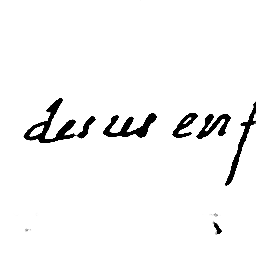 desus enf